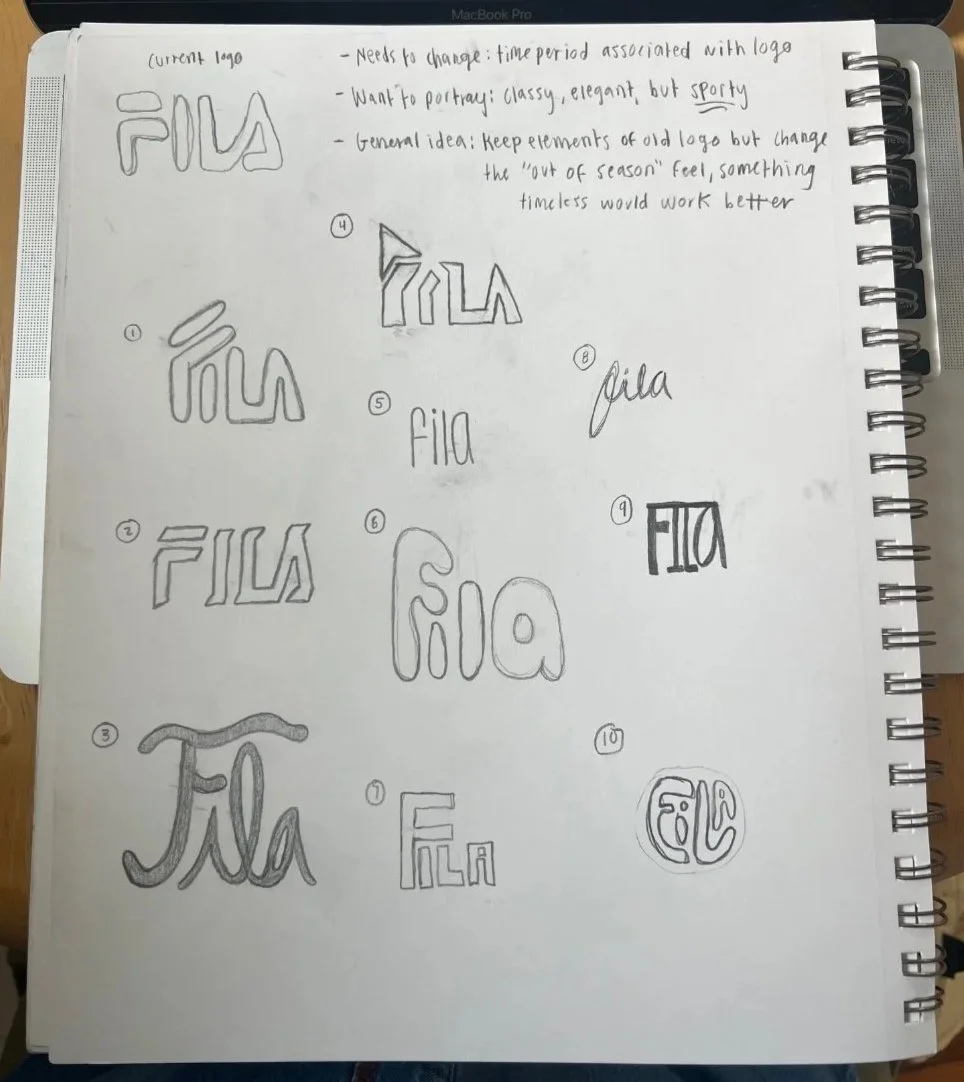 MacBook Pro
current logo
- Needs to change: time period associated with logo
- Want to portray: classy, elegant, but sporty
- General idea: Keep elements of old logo but change
the "out of season" feel, something
timeless would work better
FILA
4
FILA
1
FILA
8
fila
5
fila
9
FILa
2
FILA
6
Fila
3
Fila
10
FiLA
7
FILA